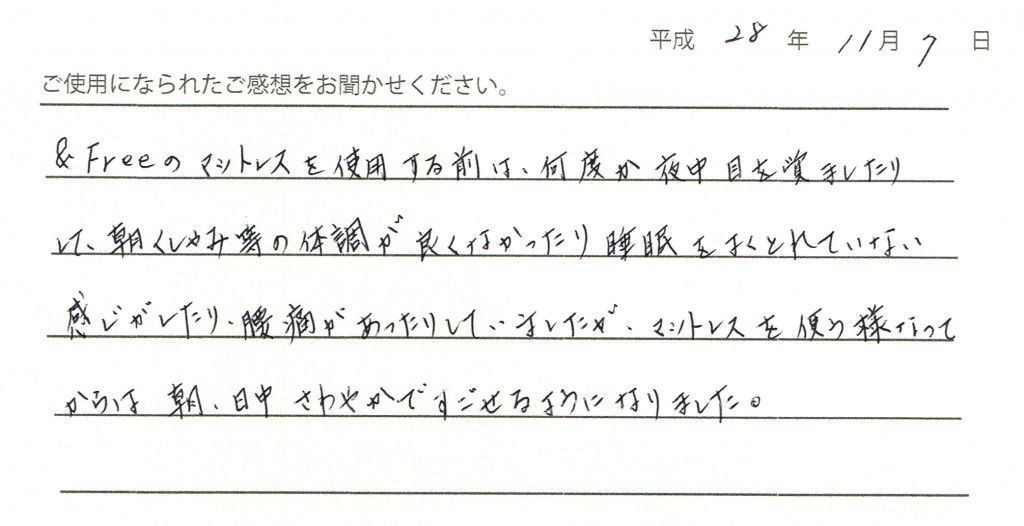 平成 28 年 11月 7 日
ご使用になられたご感想をお聞かせください。
&Freeのマットレスを使用する前は、何度か夜中目を覚ましたり
して、朝くしゃみ等の体調が良くなかったり睡眠をよくとれていない
感じがしたり、腰痛があったりしていましたが、マットレスを使う様なって
からは朝、日中さわやかですごせるようになりました。